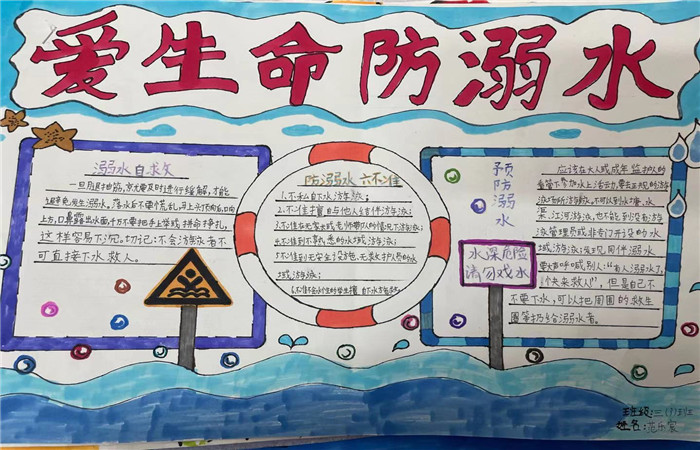 爱生命防溺水
溺水自救
一旦腿抽筋,就要及时进行缓解,才能
避免发生溺水。落水后不要慌乱,马上头顶向后,口向
上方,口鼻露出水面,千万不要把手上举或拼命挣扎,
这样容易下沉。切记:不会游泳者不
可直接下水救人。
防溺水六不准
1.不私自下水游泳;
2.不准擅自与他人结伴游泳;
3.不准在无家长或老师带队的情况下游泳;
4.不准到不熟悉的水域游泳;
5.不准到无安全设施、无救护人员的水
域游泳;
6.不准不会水性的学生擅自下水施救。
预防溺水
应该在大人或成年监护人的
看管下参加水上活动,要去正规的游
泳场所游泳,不可以到水塘、水
渠、江河游泳,也不能到没有游
泳管理员或非专门开设的水
域游泳;发现同伴溺水
要大声呼喊别人:"有人溺水了,
快来救人",但是自己不
要下水,可以把周围的救生
圈等扔给溺水者。
水深危险
请勿戏水
班级:三(7)班
姓名:范乐